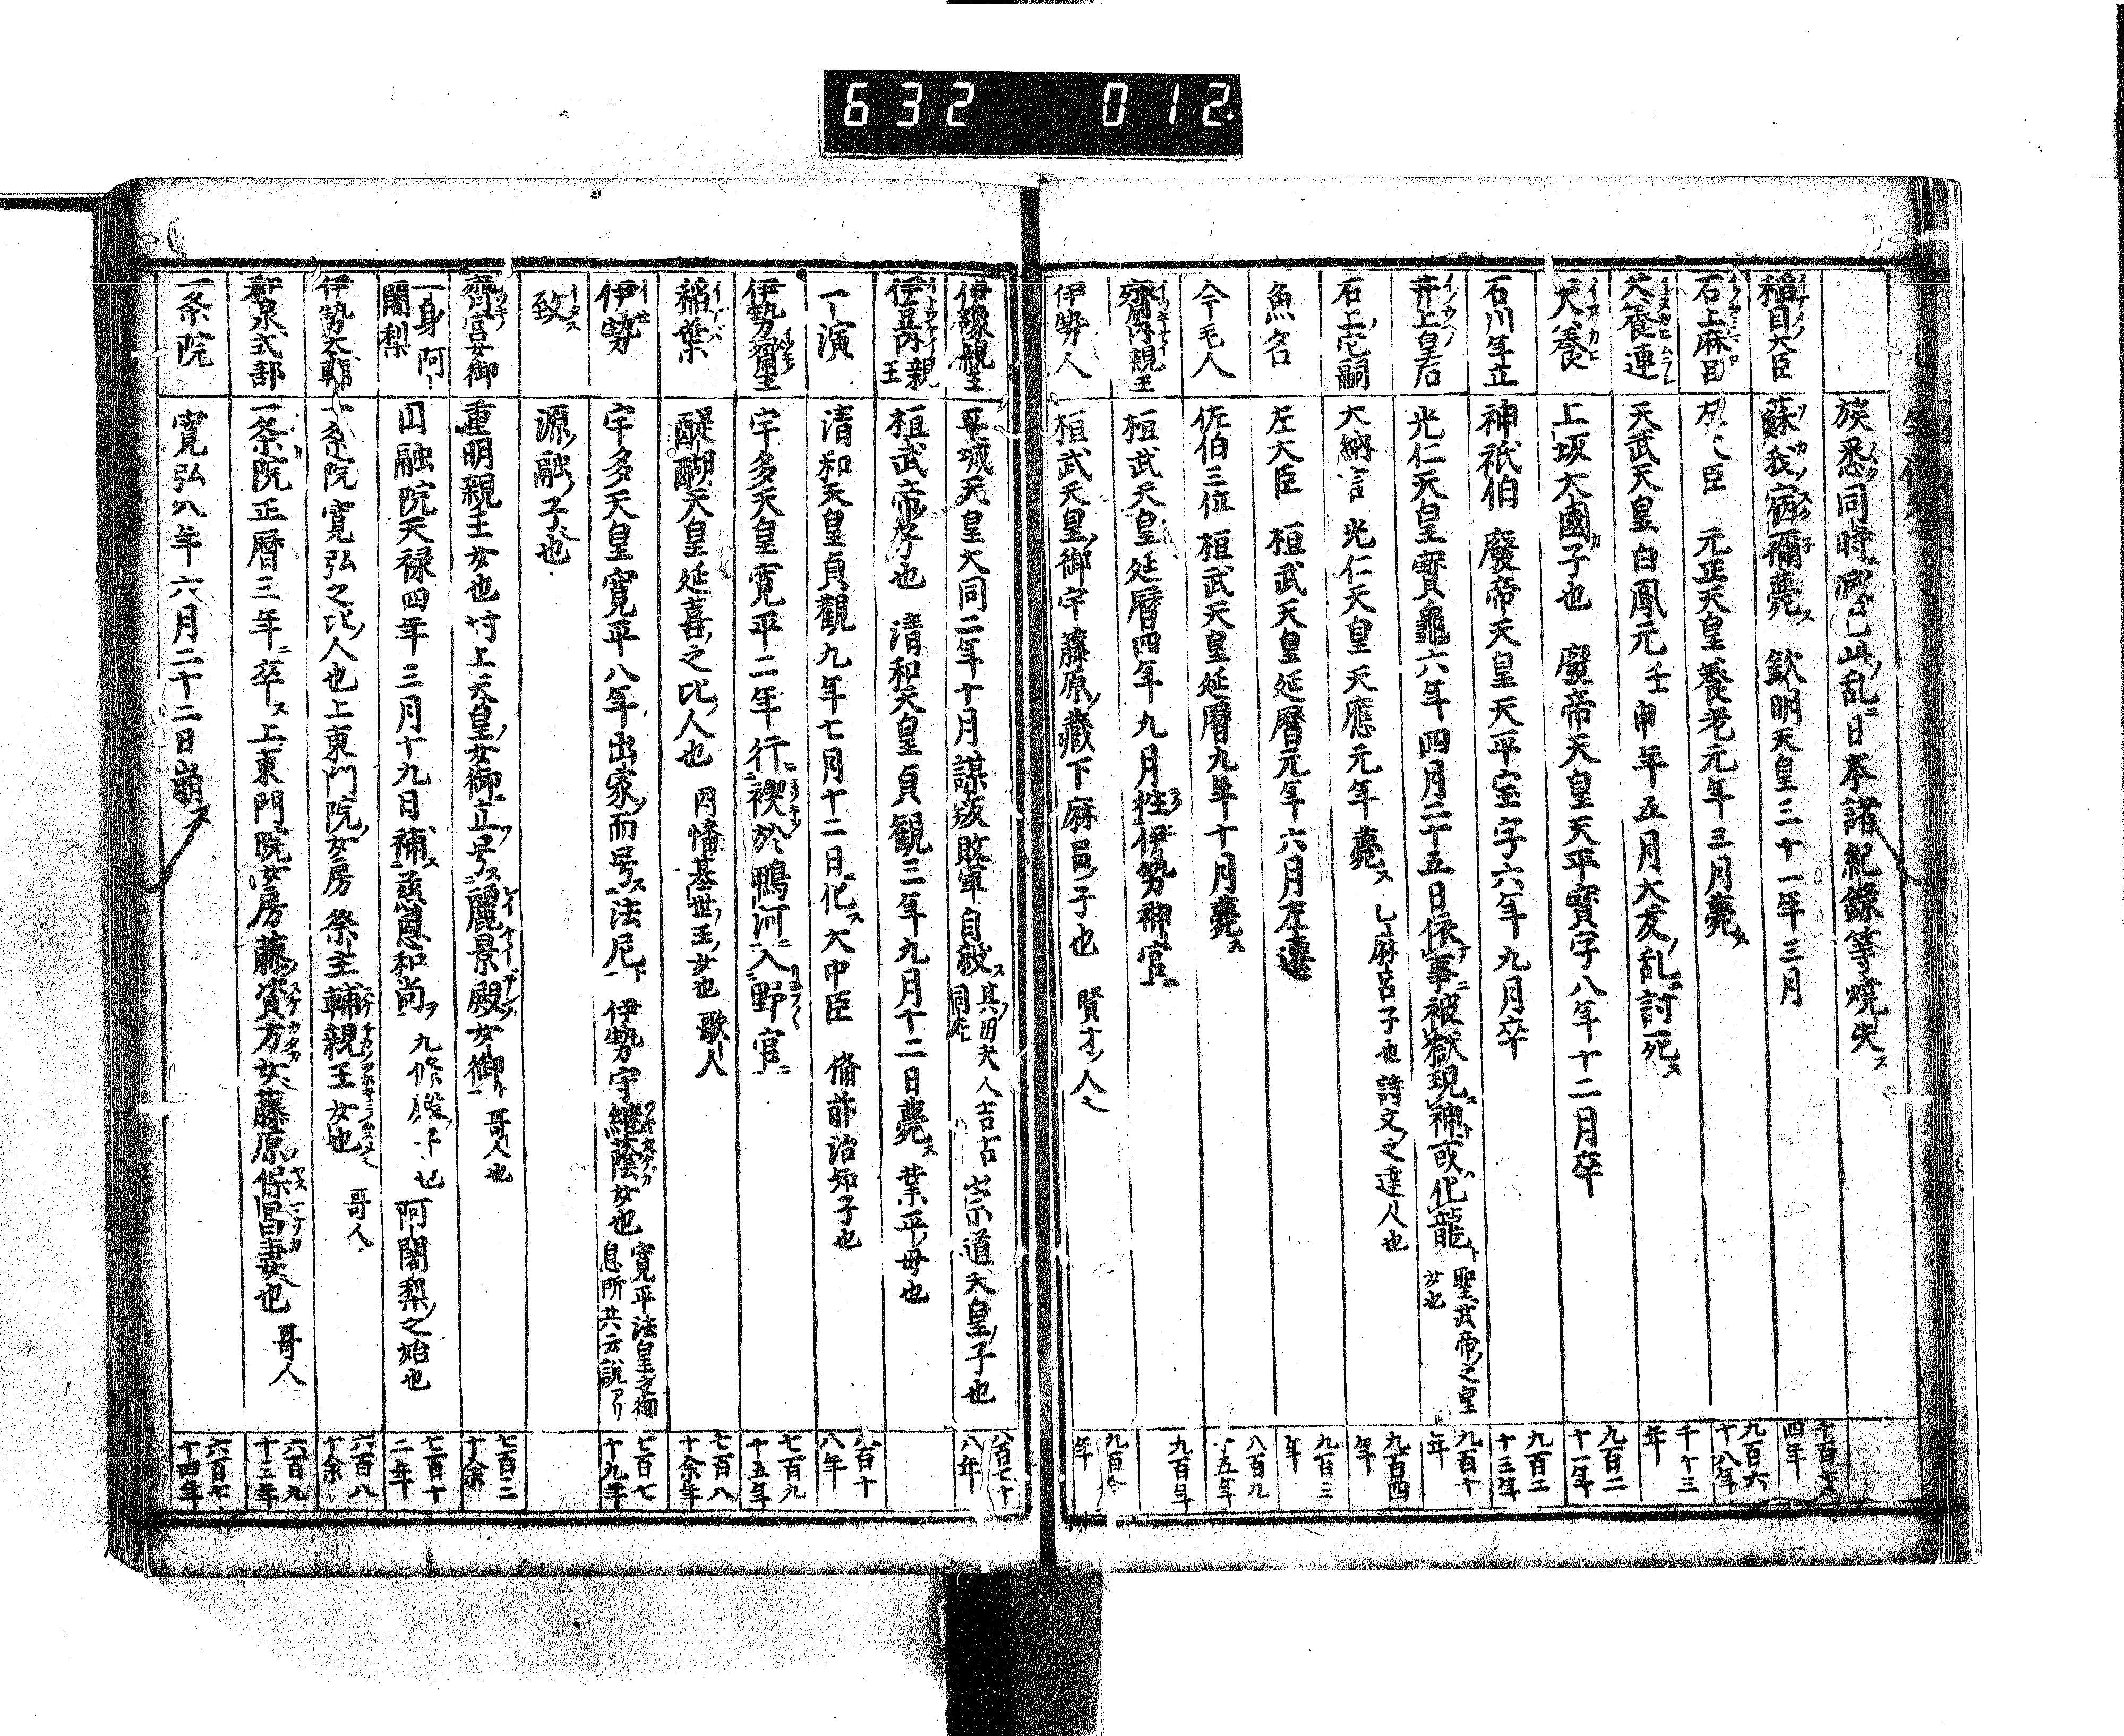 632 012
族悉同時滅亡此乱日本諸紀録等焼失ス
稲目大臣 蘇我宿禰薨ス 欽明天皇三十一年三月 千百十四年
石上麻呂 大臣 元正天皇養老元年三月薨ス 九百六十八年
犬養連 天武天皇白鳳元壬申年五月大友ノ乱討死ス 千十三年
犬養 上坂大國子也 廢帝天皇天平寳字八年十二月卒 九百二十一年
石川年足 神祇伯 廢帝天皇天平宝字六年九月卒 九百二十三年
井上皇后 光仁天皇寳龜六年四月二十五日依事被獄現神或化龍ト 聖武帝之皇女也 九百十年
石上宅嗣 大納言 光仁天皇天應元年薨ス 乙麻呂子也詩文之達人也 九百四年
魚名 左大臣 桓武天皇延暦元年六月左遷 九百三年
今毛人 佐伯三位 桓武天皇延暦九年十月薨ス 八百九十五年
齋内親王 桓武天皇延暦四年九月徃伊勢神宮ニ 九百年
伊勢人 桓武天皇御宇藤原ノ蔵下麻呂子也 賢才ノ人也 九百年
伊豫親王 平城天皇大同二年十月謀叛敗軍自殺ス 其母夫人吉子同死 崇道天皇ノ子也 八百七十八年
伊豆内親王 桓武帝ノ子也 清和天皇貞観三年九月十二日薨ス 業平ノ母也
一演 清和天皇貞觀九年七月十二日化ス 大中臣 備前治知子也 八百十八年
伊勢齋宮 宇多天皇寛平二年行禊於鴨河ニ入野宮ニ 七百九十五年
稲葉 醍醐天皇延喜ノ之比ノ人也 因幡基世ノ王ノ女也 歌人 七百八十余年
伊勢 宇多天皇寛平八年出家ソ而号ス法尼ト 伊勢守継蔭女也 寛平法皇之御息所共云説アリ 七百七十九年
致 源ノ融ノ子也
齋宮女御 重明親王女也村上天皇ノ女御ニ立号ス麗景殿女御ト 哥人也 七百二十余
一身阿闍梨 円融院天禄四年三月十九日補ス慈恵和尚ヲ 九條殿ノ子也 阿闍梨ノ之始也 七百十二年
伊勢大輔 一条院寛弘之比ノ人也上東門院ノ女房 祭主輔親王女也 哥人 六百八十余
和泉式部 一条院正暦三年ニ卒ス上東門院女房藤ノ資方女藤原ノ保昌妻也 哥人 六百九十三年
一条院 寛弘八年六月二十二日崩ス 六百七十四年